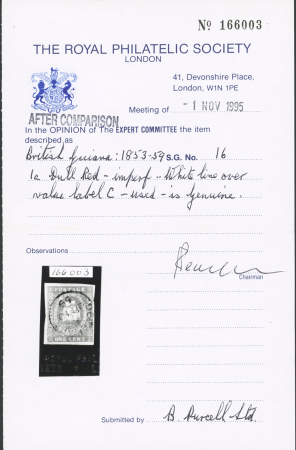 No 166003
THE ROYAL PHILATELIC SOCIETY
LONDON
41, Devonshire Place,
London, W1N 1PE
Meeting of - 1 NOV 1995
AFTER COMPARISON
In the OPINION of The EXPERT COMMITTEE the item
described as
British Guiana: 1853-59 S.G. No. 16
1c Dull Red - imperf - White line over
value label C - used - is genuine.
Observations
Chairman
166003
POSTAGE
ONE CENT
Submitted by B. Purcell Std